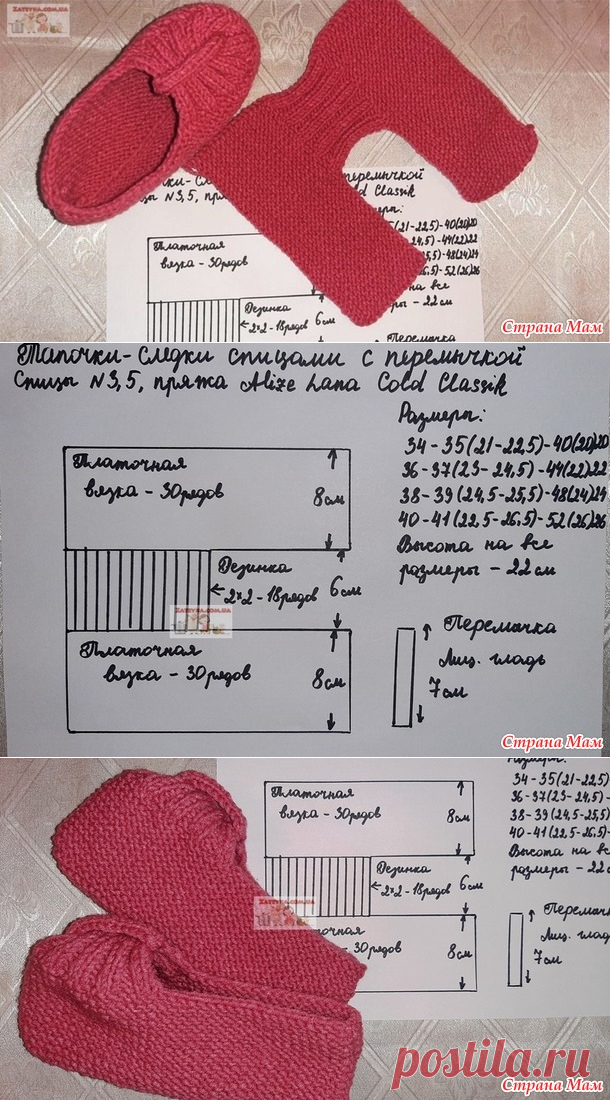 ZATEYNA.COM.UA
перемычкой
пря Cold Classik
40(20)20
44(22)22
48(24)24
52(26)26
Платочная
вязка - 30рядов
Резинка
2×2 - 18рядов 6см
на все
ры - 22см
Перемычка
Страна Мам
Тапочки-следки спицами с перемычкой
Спицы N3,5, пряжа Alize Lana Cold Classik
Размеры:
34-35(21-22,5)-40(20)20
36-37(23-24,5)-44(22)22
38-39(24,5-25,5)-48(24)24
40-41(22,5-26,5)-52(26)26
Высота на все
размеры - 22см
Платочная
вязка - 30рядов
8см
Резинка
2×2 - 18рядов
6см
ZATEYNA.COM.UA
Платочная
вязка - 30рядов
8см
Перемычка
Лиц. гладь
7см
Страна Мам
34-35(21-22,5)
36-37(23-24,5)
38-39(24,5-25,5)
40-41(22,5-26,5)-
Высота на вс
размеры - 22с
Платочная
вязка - 30рядов
8см
Резинка
2×2 - 18рядов
6см
ZATEYNA.COM.UA
латочная
- 30рядов
8см
Перемычк
Лиц. гла
7см
postila.ru
Страна Мам